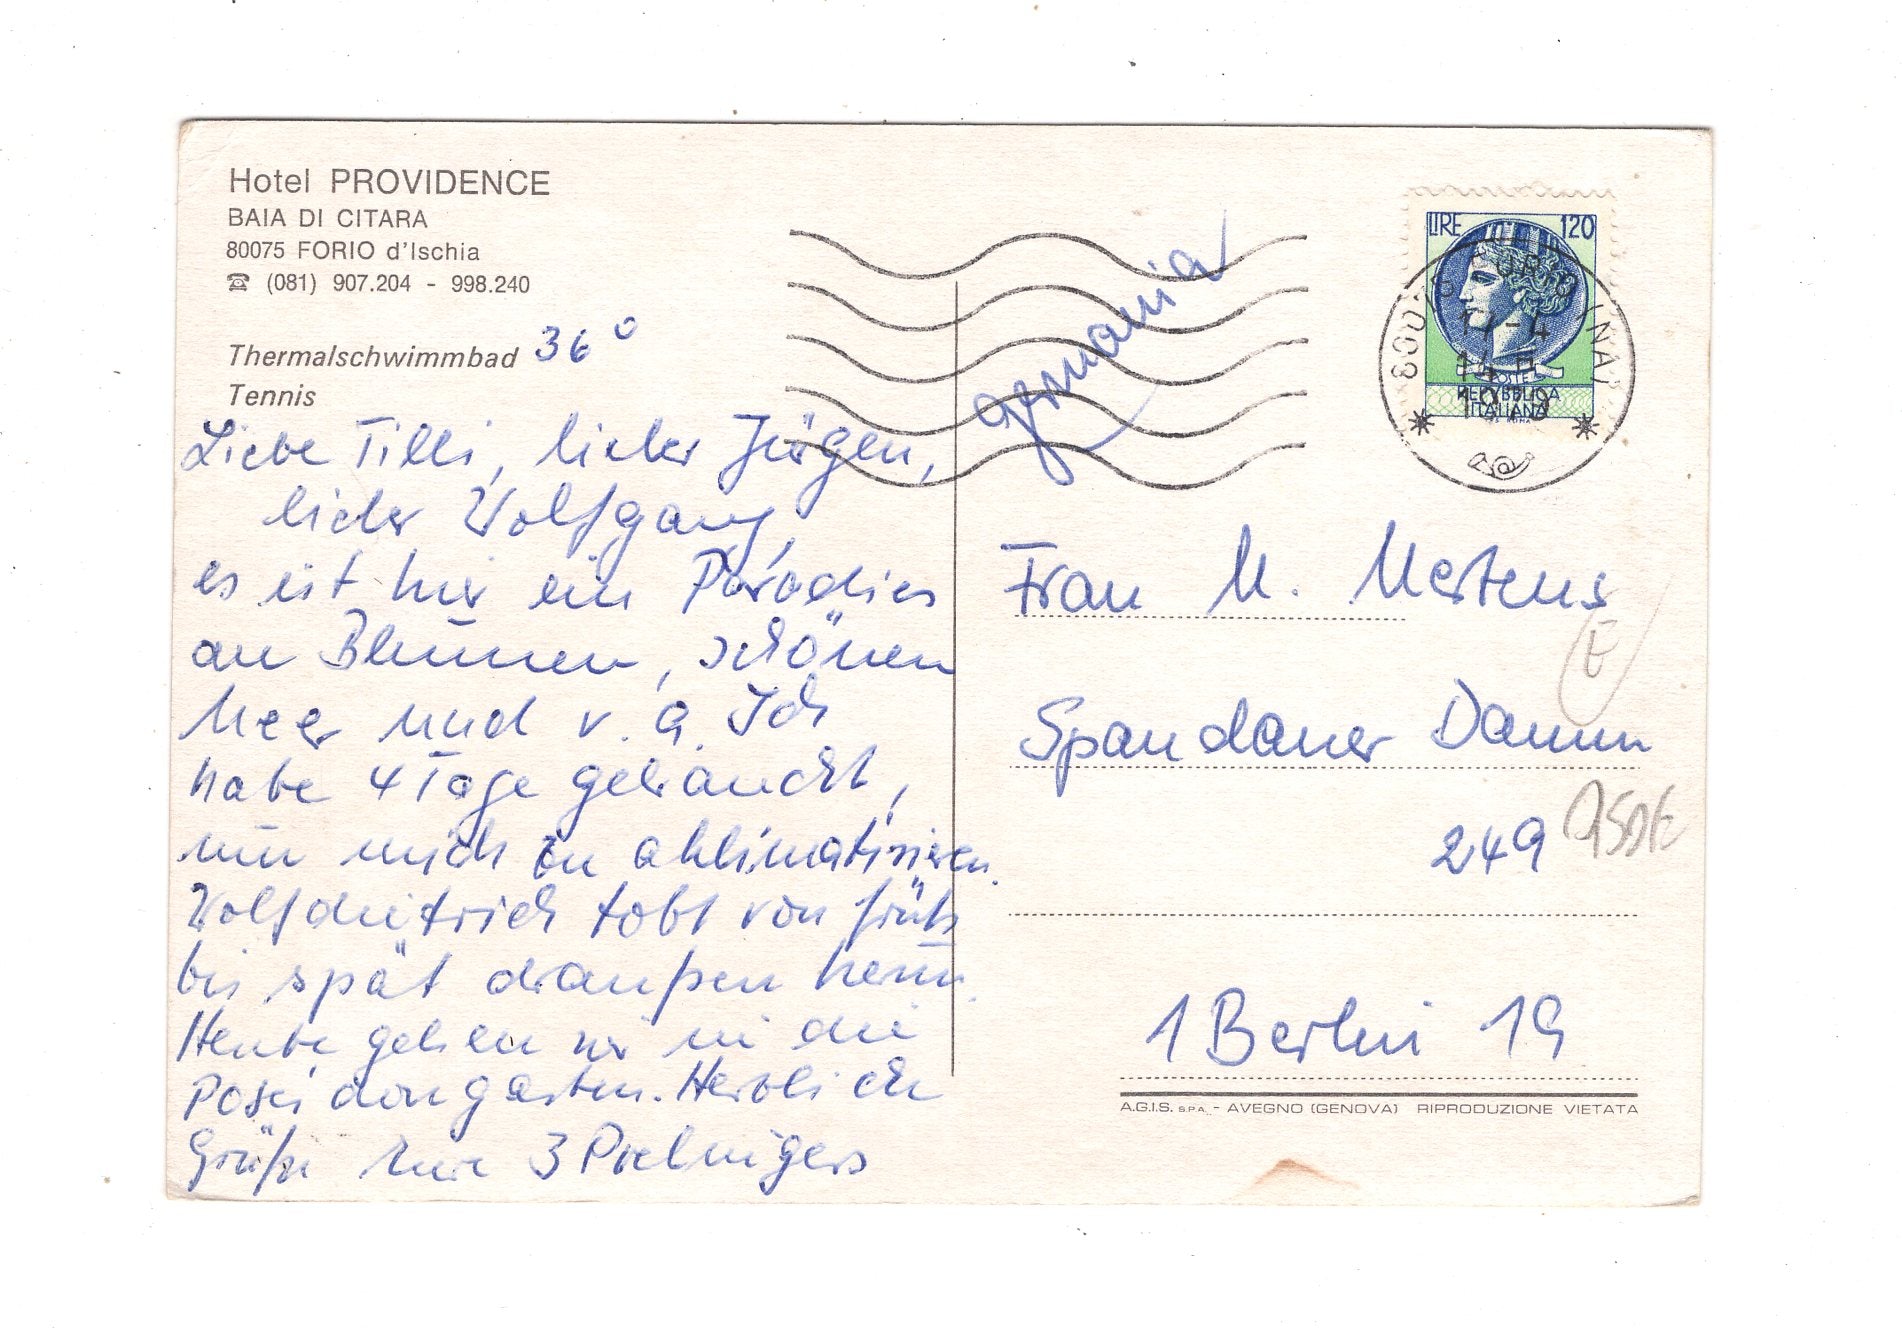 Hotel PROVIDENCE
BAIA DI CITARA
80075 FORIO d'Ischia
☎ (081) 907.204 - 998.240
Thermalschwimmbad 36°
Tennis
Liebe Tilli, lieber Jürgen,
lieber Wolfgang,
es ist hier ein Paradies
an Blumen, schönen
Meer und v. a. Ich
habe 4 Tage gebraucht,
um mich zu aklimatisieren.
Wolfdietrich tobt von früh
bis spät draußen herum.
Heute gehen wir in die
Poseidongärten. Herzliche
Grüße Eure 3
germania
LIRE 120
POSTE
REPUBBLICA
ITALIANA
80075 FORIO (NA)
Frau M. Mertens
Spandauer Damm
249
1 Berlin 19
A.G.I.S. S.P.A. - AVEGNO (GENOVA) RIPRODUZIONE VIETATA